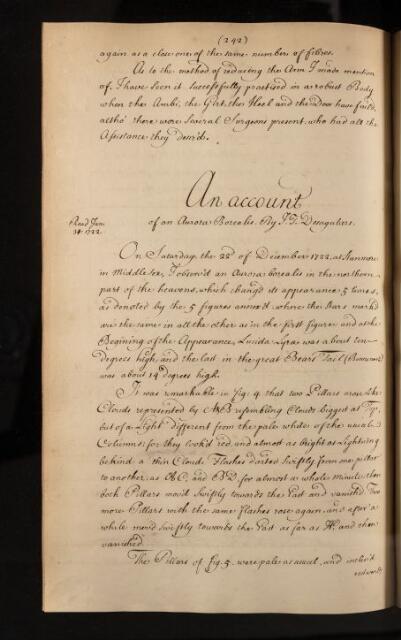 (242)
again as a close one of the same number of fibres.
As to the method of reducing the Arm I made mention
of, I have seen it successfully practised in a robust Body
when the Ambi, the Girt, the Heel and the Door have fail'd,
altho' there were several Surgeons present, who had all the
Assistance they desir'd.
An account
Read Jan
of an Aurora Borealis. By J. T. Desaguliers.
On Saturday the 22d of December 1722, at Stanmore
in Middlesex, I observ'd an Aurora borealis in the northern
part of the heavens, which chang'd its appearance 5 times,
as denoted by the 5 figures annex'd where the Stars mark'd
are the same in all the other as in the first figure and at the
Begining of the Appearance, Lucida Lyra was about ten
degrees high, and the last in the great Bears Tail
was about 14 degrees high.
It was remarkable in fig. 4 that two Pillars arose like
Clouds represented by A&B resembling Clouds biggest at Top,
but of a Light different from the pale white of the usual
Columns: for they look'd red, and almost as bright as Lightning
behind a thin Cloud. Flashes darted swiftly from one pillar
to another, as AC and BD for almost a whole minute, then
both Pillars mov'd swiftly towards the East and vanish'd. Two
more Pillars with the same flashes rose again, and after a
while mov'd swiftly towards the East as far as H, and then
vanished.
The Pillars of fig. 5. were pale as usual, and